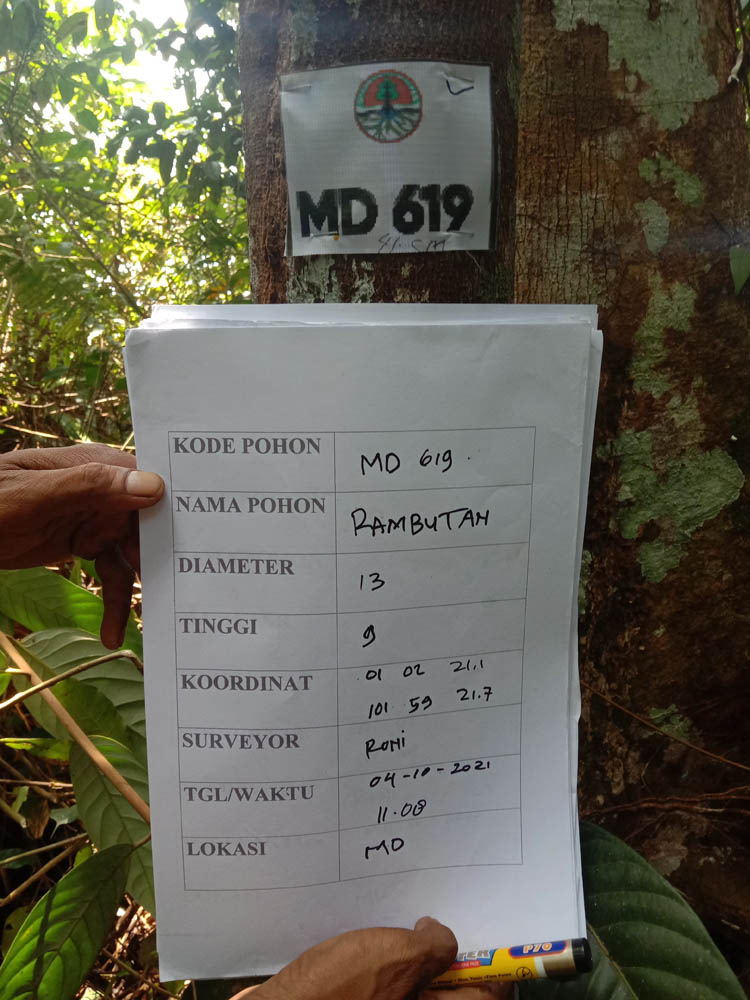 MD 619
KODE POHON MD 619.
NAMA POHON RAMBUTAN
DIAMETER 13
TINGGI 9
KOORDINAT 01 02 21.1
101 59 21.7
SURVEYOR RONI
TGL/WAKTU 04-10-2021
11.08
LOKASI MD
P70